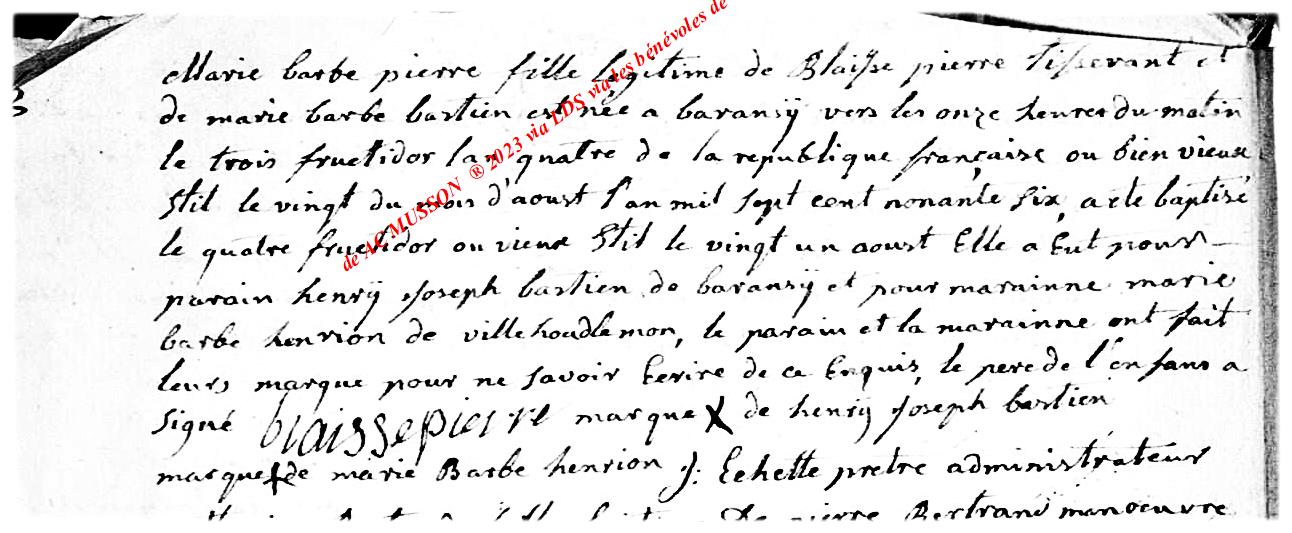 Marie barbe pierre fille légitime de Blaisse pierre tisserant et
de marie barbe bastien est née a baransÿ vers les onze heures du matin
le trois fructidor lan quatre de la republique française ou bien vieux
Stil le vingt du mois d'aoust l'an mil sept cent nonante six, a ete baptisé
le quatre fructidor ou vieux Stil le vingt un aoust Elle a Eut pour
parain henrÿ Joseph bastien de baransÿ et pour marainne marie
barbe henrion de villehoudlemon, le parain et la marainne ont fait
leurs marque pour ne savoir Ecrire de ce Enquis, le pere de l'enfans a
signé blaissepierre marque X de henrÿ Joseph bastien
marque + de marie Barbe henrion J: Echette pretre administrateur
pierre Bertrand manoeuvre
de AC MUSSON ® 2023 via LDS via les bénévoles de